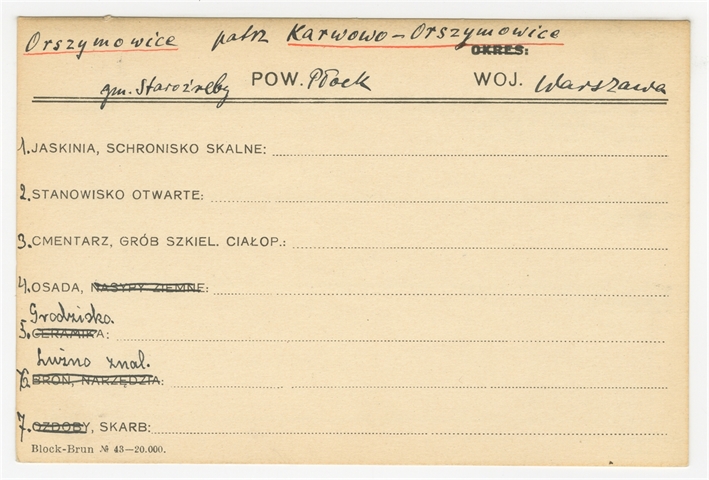 Orszymowice patrz Karwowo-Orszymowice
OKRES:
gm. Staroźreby POW. Płock WOJ. Warszawa
1. JASKINIA, SCHRONISKO SKALNE:
2. STANOWISKO OTWARTE:
3. CMENTARZ, GRÓB SZKIEL. CIAŁOP.:
4. OSADA, NASYPY ZIEMNE:
Grodzisko.
5. CERAMIKA:
Luźno znal.
6. BROŃ, NARZĘDZIA:
7. OZDOBY, SKARB:
Block-Brun № 43—20.000.